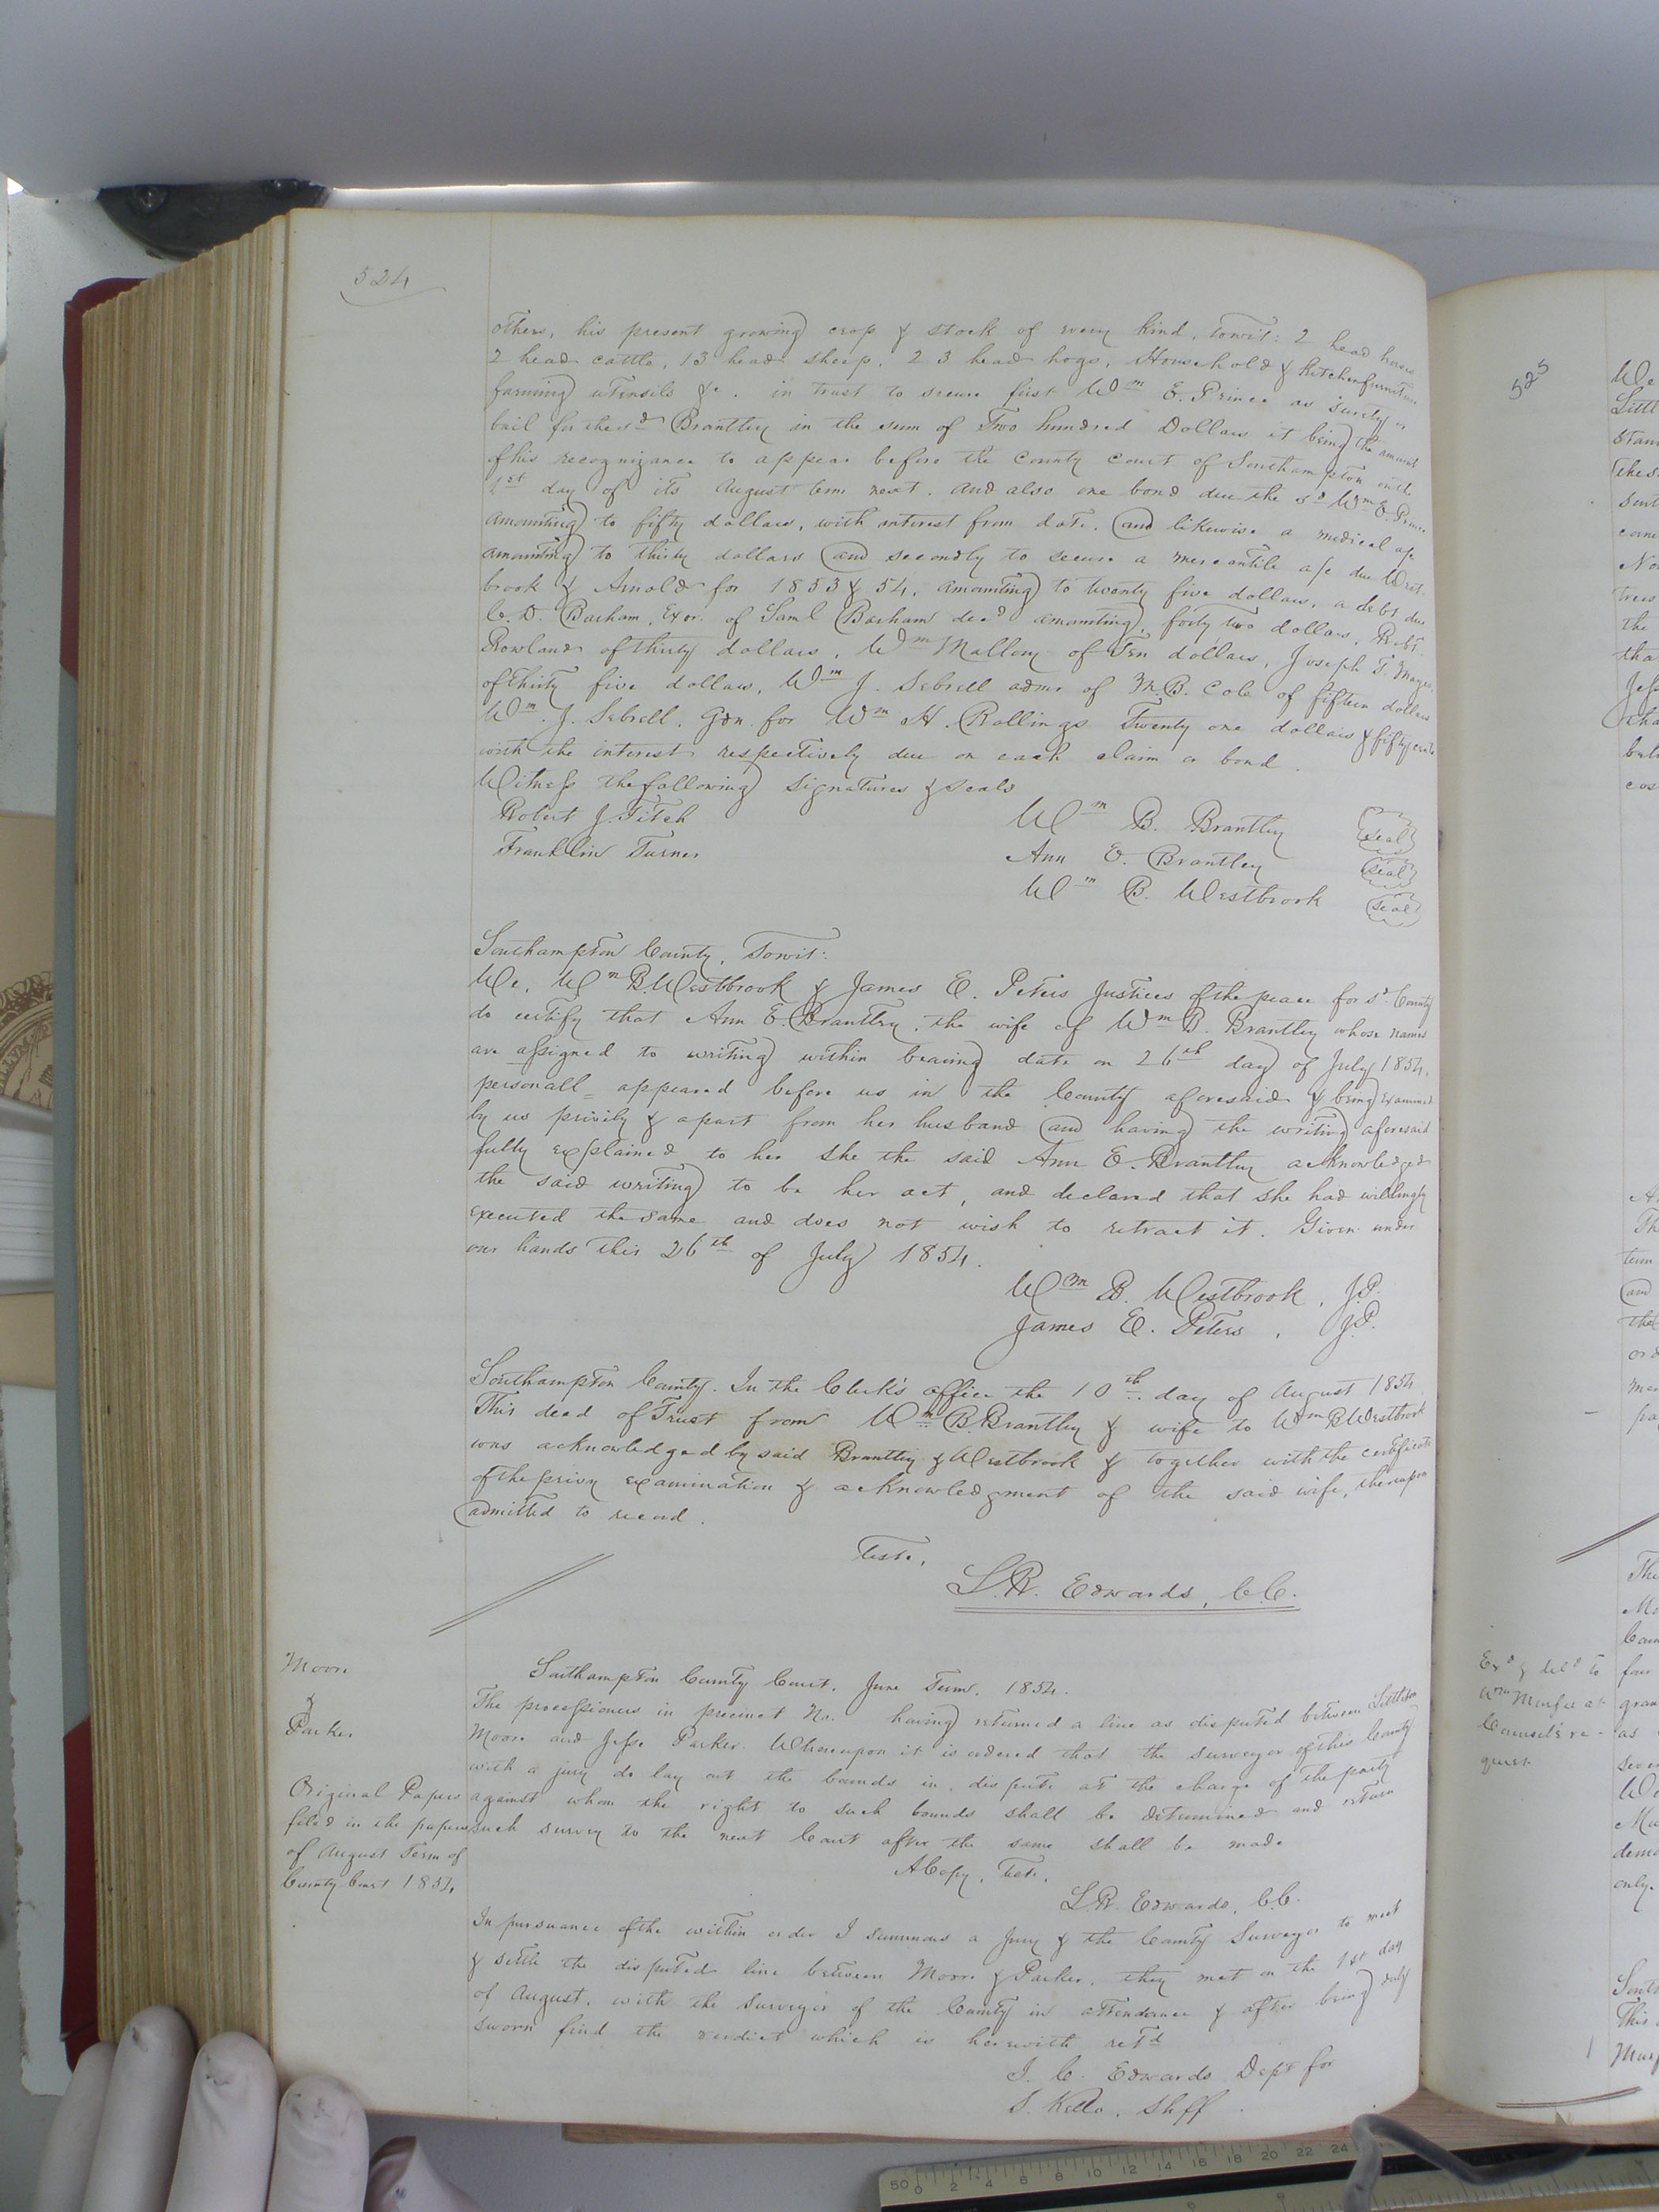 524
others, his present growing crop & stock of every kind, towit: 2 head horses
2 head cattle, 13 head sheep, 23 head hogs, Household & Kitchen furniture
farming utensils &c. in trust to secure first Wm E. Prince as surety or
bail for the sd Brantley in the sum of Two hundred Dollars it being the amount
of his recognizance to appear before the County Court of Southampton on the
1st day of its August term next. And also one bond due the sd Wm E. Prince
amounting to fifty dollars, with interest from date, and likewise a medical a/c
amounting to thirty dollars and secondly to secure a mercantile a/c due West-
brook & Arnold for 1853 & 54, amounting to twenty five dollars, a debt due
C. D. Barham, Exor. of Saml Barham decd amounting, forty two dollars, Robt
Rowland of thirty dollars, Wm Mallory of Ten dollars, Joseph T.
of thirty five dollars, Wm J. Sebrell admr of M. B. Cole of fifteen dollars
Wm. J. Sebrell, Gdn. for Wm H. Rollings Twenty one dollars & fifty cents
with the interest respectively due on each claim or bond.
Witness the following signatures & seals
Robert J. Fitch Wm B. Brantley seal
Franklin Turner Ann E. Brantley seal
Wm B. Westbrook seal
Southampton County, Towit:
We, Wm B. Westbrook & James E. Peters Justices of the peace for sd County
do certify that Ann E. Brantley, the wife of Wm B. Brantley whose names
are assigned to writing within bearing date on 26th day of July 1854,
personall= appeared before us in the County aforesaid & being examined
by us privily & apart from her husband and having the writing aforesaid
fully explained to her she the said Ann E. Brantley acknowledged
the said writing to be her act, and declared that she had willingly
executed the same and does not wish to retract it. Given under
our hands this 26th of July 1854.
Wm B. Westbrook, J.P.
James E. Peters, J.P.
Southampton County. In the Clerk's office the 10th day of August 1854
This deed of Trust from Wm B. Brantley & wife to Wm B Westbrook
was acknowledged by said Brantley & Westbrook & together with the certificate
of the privy examination & acknowledgment of the said wife, thereupon
admitted to record.
Teste,
L. R. Edwards, C.C.
Moore
&
Parker
Southampton County Court, June Term, 1854.
The processioners in precinct No. having returned a line as disputed between
Moore and Jesse Parker. Whereupon it is ordered that the surveyor of this County
with a jury do lay out the bounds in dispute at the charge of the party
against whom the right to such bounds shall be determined and return
such survey to the next Court after the same shall be made
Original Papers
filed in the papers
of August Term of
County Court 1854
A Copy, Teste,
L. R. Edwards, C.C.
In pursuance of the within order I summons a Jury & the County Surveyor to meet
& settle the disputed line between Moore & Parker, they met on the 1st day
of August, with the surveyor of the County in attendance & after being duly
sworn find the verdict which is herewith retd
J. C. Edwards Dept for
S. Kello, Shff
525
Exd & deld to
Wm Murfee at
Counsel's re-
quest
50 0 2 4 6 8 10 12 14 16 18 20 22 24